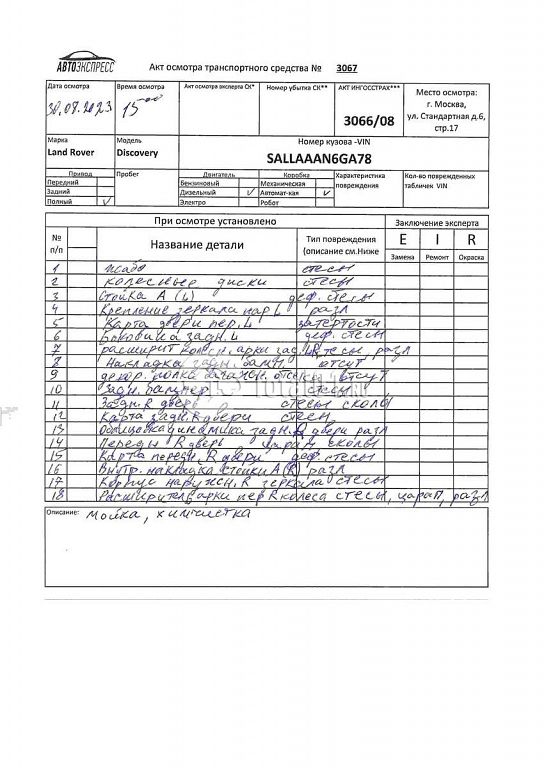 АВТОЭКСПРЕСС
Акт осмотра транспортного средства № 3067
Дата осмотра
30.08.2023
Время осмотра
15 00
Акт осмотра эксперта СК*
Номер убытка СК**
АКТ ИНГОССТРАХ***
3066/08
Место осмотра:
г. Москва,
ул. Стандартная д.6,
стр.17
Марка
Land Rover
Модель
Discovery
Номер кузова -VIN
SALLAAAN6GA78
Привод
Передний
Задний
Полный V
Пробег
Двигатель
Бензиновый
Дизельный V
Электро
Коробка
Механическая
Автомат-кая V
Робот
Характеристика
повреждения
Кол-во поврежденных
табличек VIN
При осмотре установлено
Заключение эксперта
№
п/п
Название детали
Тип повреждения
(описание см.Ниже
E I R
Замена Ремонт Окраска
1 жабо стесы
2 колесные диски стесы
3 Стойка А (L) деф. стесы
4 Крепление зеркала пар L разл
5 Карта двери пер. L затертости
6 Боковина задн. L деф. стесы
7 расширит колесн. арки зад. стесы, разл
8 Накладка задн. бамп отсут
9 декор. полка багажн. отсека отсут
10 Задн. бампер стесы
11 Задн. R дверь стесы сколы
12 Карта задн. R двери стесы
13 Облицовка динамика задн. R двери разл
14 Передн R дверь царап сколы
15 Карта передн. R двери деф. стесы
16 Внутр. накладка стойки А (R) разл
17 Корпус наружн. R зеркала стесы
18 Расширител арки пер R колеса стесы, царап, разл
Описание: Мойка, химчистка